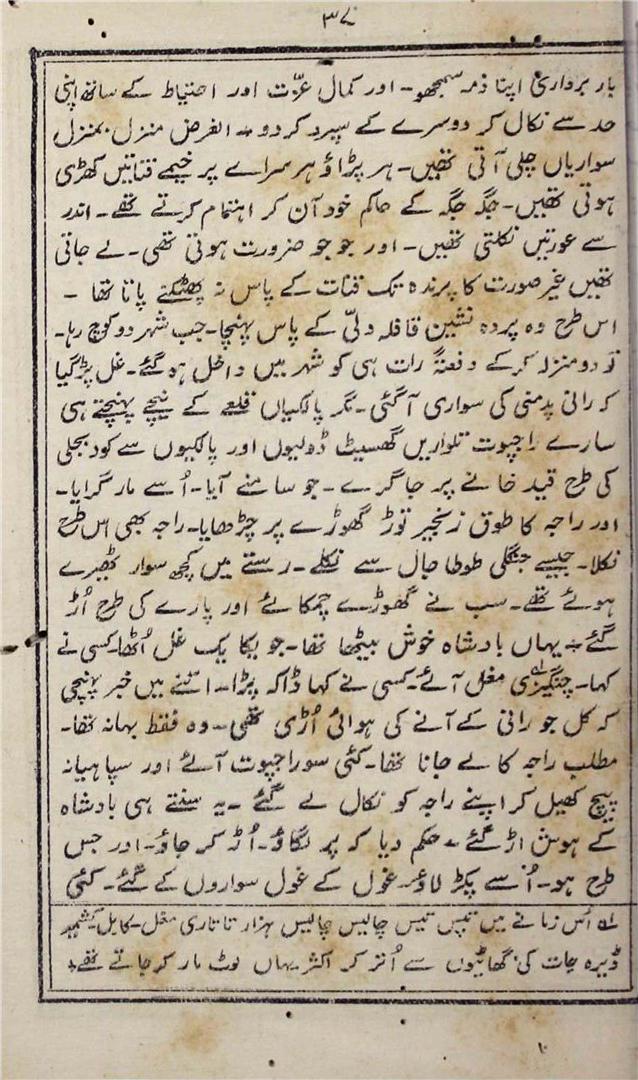 ۳۷
بار برداری اپنا ذمہ سمجھو۔ اور کمال عزّت اور احتیاط کے ساتھ اپنی
حد سے نکال کر دوسرے کے سپرد کر دو۔ الغرض منزل بمنزل
سواریاں چلی آتی تھیں۔ ہر پڑاؤ ہر سراے پر خیمے قناتیں کھڑی
ہوتی تھیں۔ جگہ جگہ کے حاکم خود آن کر اہتمام کرتے تھے۔ اندر
سے عورتیں نکلتی تھیں۔ اور جو جو ضرورت ہوتی تھی۔ لے جاتی
تھیں غیر صورت کا پرندہ تک قنات کے پاس نہ پھٹکنے پاتا تھا۔
اس طرح وہ پردہ نشین قافلہ دلّی کے پاس پہنچا۔ جب شہر دو کوچ رہا۔
تو دو منزلہ کر کے دفعتہً رات ہی کو شہر میں داخل ہو گئے۔ غل پڑ گیا
کہ رانی پدمنی کی سواری آگئی۔ مگر پالکیاں قلعے کے نیچے پہنچتے ہی
سارے راجپوت تلواریں گھسیٹ ڈولیوں اور پالکیوں سے کود بجلی
کی طرح قید خانے پر جا گرے۔ جو سامنے آیا۔ اُسے مار گرایا۔
اور راجہ کا طوق زنجیر توڑ گھوڑے پر چڑھایا۔ راجہ بھی اس طرح
نکلا۔ جیسے جنگلی طوطا جال سے نکلے۔ رستے میں کچھ سوار ٹھیرے
ہوئے تھے۔ سب نے گھوڑے چمکائے اور پارے کی طرح اُڑ
گئے۔ یہاں بادشاہ خوش بیٹھا تھا۔ جو یکا یک غل اُٹھا۔ کسی نے
کہا۔ چنگیزی ؂۱ مغل آئے۔ کسی نے کہا ڈاکہ پڑا۔ اتنے میں خبر پہنچی
کہ کل جو رانی کے آنے کی ہوائی اُڑی تھی۔ وہ فقط بہانہ تھا۔
مطلب راجہ کا لے جانا تھا۔ کئی سو راجپوت آئے اور سپاہیانہ
پیچ کھیل کر اپنے راجہ کو نکال لے گئے۔ یہ سنتے ہی بادشاہ
کے ہوش اڑ گئے۔ حکم دیا کہ پر لگاؤ۔ اُڑ کر جاؤ۔ اور جس
طرح ہو۔ اُسے پکڑ لاؤ۔ غول کے غول سواروں کے گئے۔ کئی
؂۱ اُس زمانے میں تیس تیس چالیس چالیس ہزار تاتاری مغل۔ کابل۔ کشمیر
ڈیرہ جات کی گھاٹیوں سے اُتر کر اکثر یہاں لوٹ مار کر جاتے تھے۔